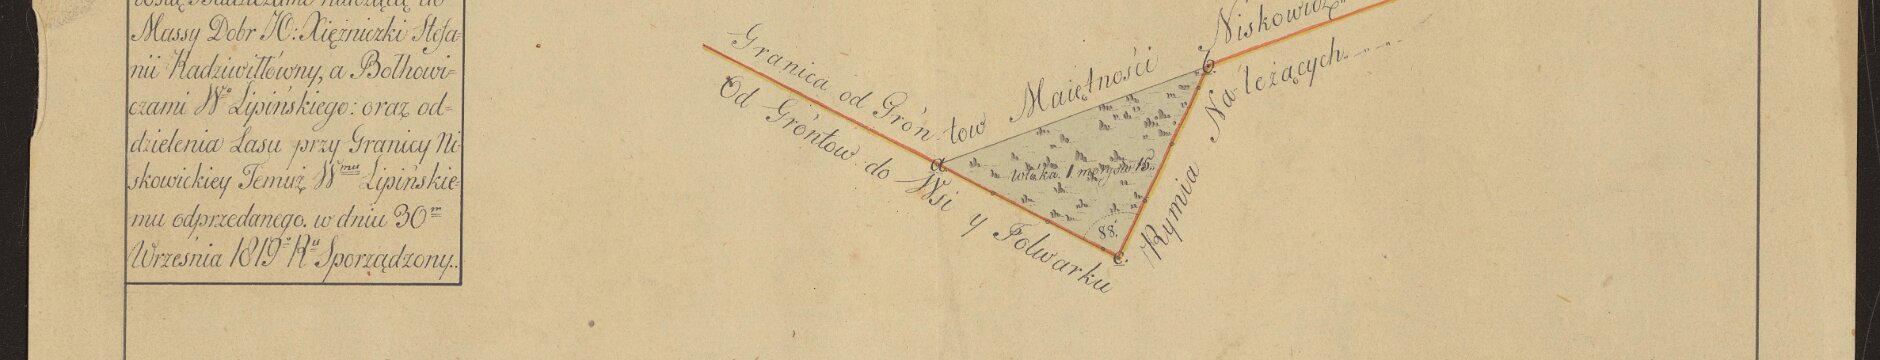 Massy Dobr JO: Xiężniczki Stefa-
nii Radziwiłłówny, a Bolhowi-
czami Wgo Lipińskiego: oraz od-
dzielenia Lasu przy Granicy Ni-
skowickiey Temuż Wmu Lipińskie-
mu odprzedanego. w dniu 30m
Września 1819º Ru Sporządzony..
Granica od Grón-tow Maiętności Niskowicz
Od Gróntow do Wsi y Folwarku Rymia Należących
a
b
c.
Włóka. 1 morgów 15.
88.